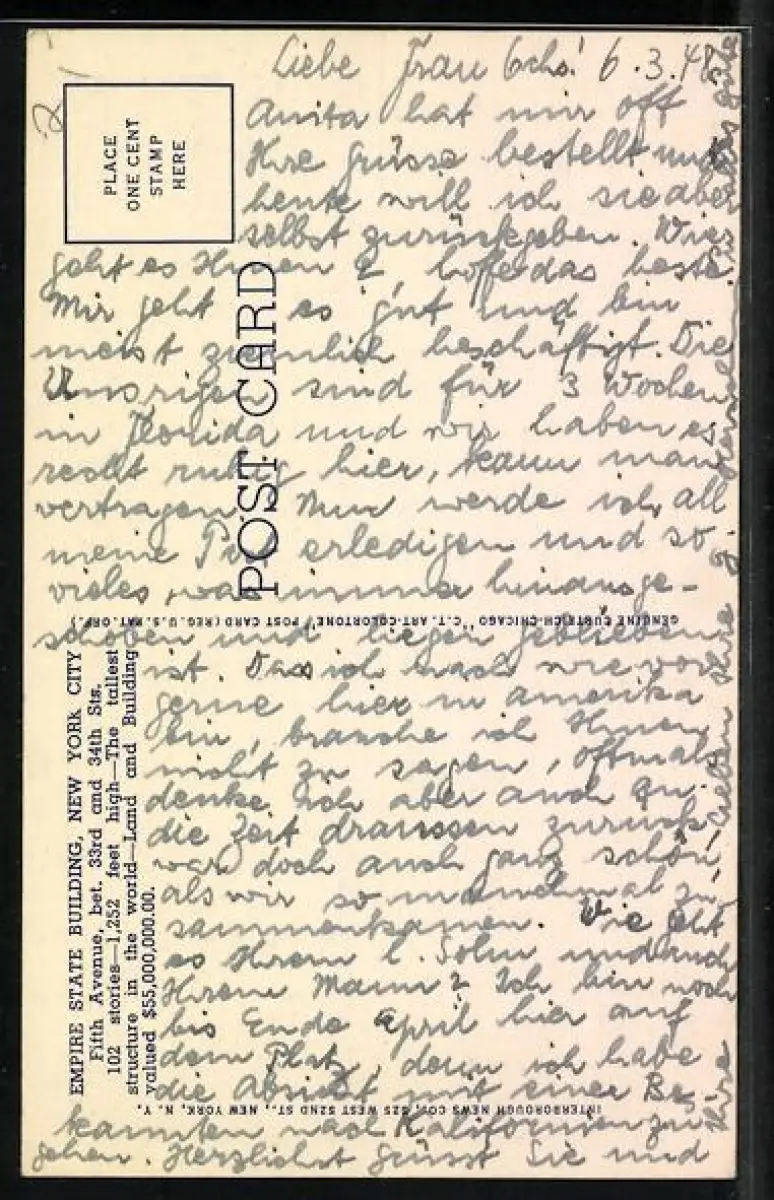 Liebe Frau Ochs! 6.3.48
Anita hat mir oft
Ihre Grüsse bestellt und
heute will ich sie aber
selbst zurückgeben. Wie
geht es Ihnen?, hoffe das beste.
Mir geht es gut und bin
meist ziemlich beschäftigt. Die
Unsrigen sind für 3 Wochen
in Florida und wir haben es
recht ruhig hier, kann man
vertragen. Nun werde ich all
meine erledigen und so
vieles, was immer hinausge-
schoben und liegen geblieben
ist. Dass ich nach wie vor
gerne hier in Amerika
bin, brauche ich Ihnen
nicht zu sagen, oftmals
denke ich aber auch an
die Zeit draussen zurück,
war doch auch ganz schön,
als wir so manchmal zu-
sammenkamen. Wie geht
es Ihrem l. Sohn und auch
Ihrem Mann? Ich bin noch
bis Ende April hier auf
dem Platz, denn ich habe
die Absicht mit einer Be-
kannten nach Kalifornien zu
gehen. Herzlichst grüsst Sie und
Ihre
PLACE
ONE CENT
STAMP
HERE
POST CARD
GENUINE CURTEICH-CHICAGO "C. T. ART-COLORTONE" POST CARD (REG. U. S. PAT. OFF.)
EMPIRE STATE BUILDING, NEW YORK CITY
Fifth Avenue, bet. 33rd and 34th Sts.
102 stories—1,252 feet high—The tallest
structure in the world—Land and Building
valued $55,000,000.00.
INTERBOROUGH NEWS CO., 525 WEST 52ND ST., NEW YORK, N. Y.